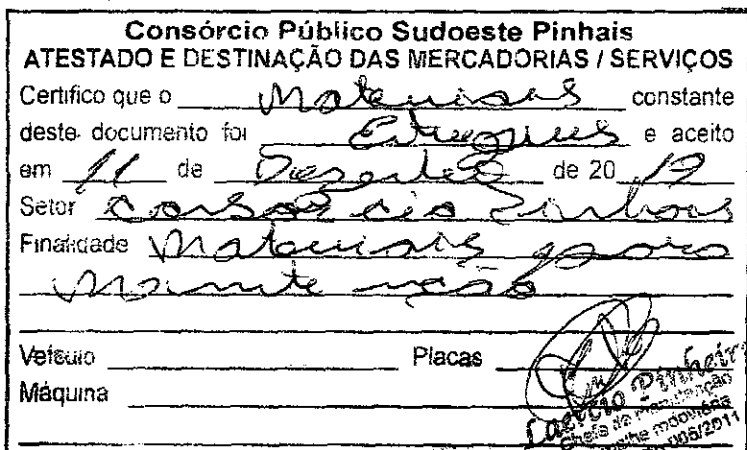 Consórcio Público Sudoeste Pinhais
ATESTADO E DESTINAÇÃO DAS MERCADORIAS / SERVIÇOS
Certifico que o Materiais constante
deste documento foi Entregues e aceito
em 11 de Dezembro de 20 17
Setor Consórcio Pinhais
Finalidade Materiais para
Manutenção
Veículo Placas
Máquina
Laercio Pinheiro
Chefe da manutenção
rodoviária
006/2011